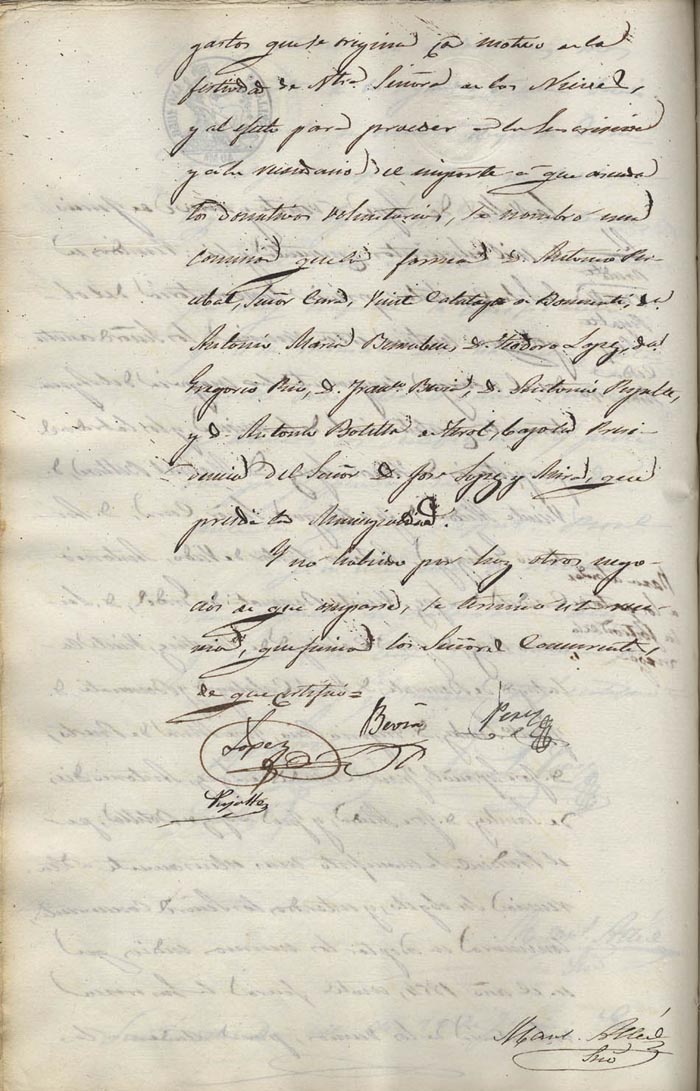 gastos que se origina con motivo de la
festividad de Ntra. Señora de las Nieves,
y al efecto para proceder a la Suscricion
y a la recaudacion del importe a que asciendan
los donativos voluntarios, se nombró una
comision que la forman D. Antonio
Señor Cura, Vicente Calatayu de Bonmati, D.
Antonio Maria Bernabeu, D. Teodoro Lopez, D.
Gregorio Rico, D. Franco. Bevia, D. Antonio Pujalte,
y D. Antonio Botella de Terol, bajo la Presi-
dencia del Señor D. Jose Lopez y Mira, que
preside la Municipalidad.
Y no habiendo por hoy otros nego-
cios de que ocuparse, se terminó esta reu-
nion, que firman los Señores Concurrentes,
de que certifico =
Bevia Perez
Lopez
Pujalte
Manl.
Srio